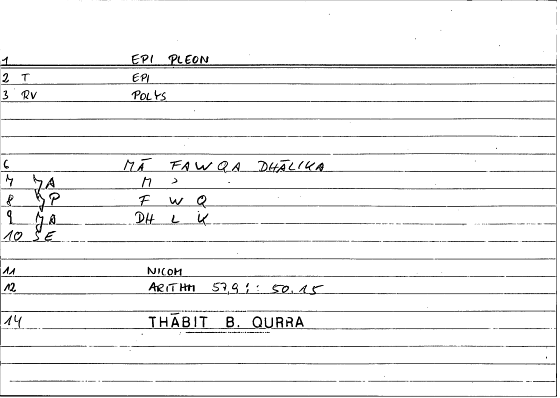 1 EPI PLEON
2 T EPI
3 RV POLYS
6 MĀ FAWQA DHĀLIKA
7 YA M ʾ
8 YP F W Q
9 YA DH L K
10 SE
11 NICOM
12 ARITHM 57,9 : : 50.15
14 THĀBIT B. QURRA